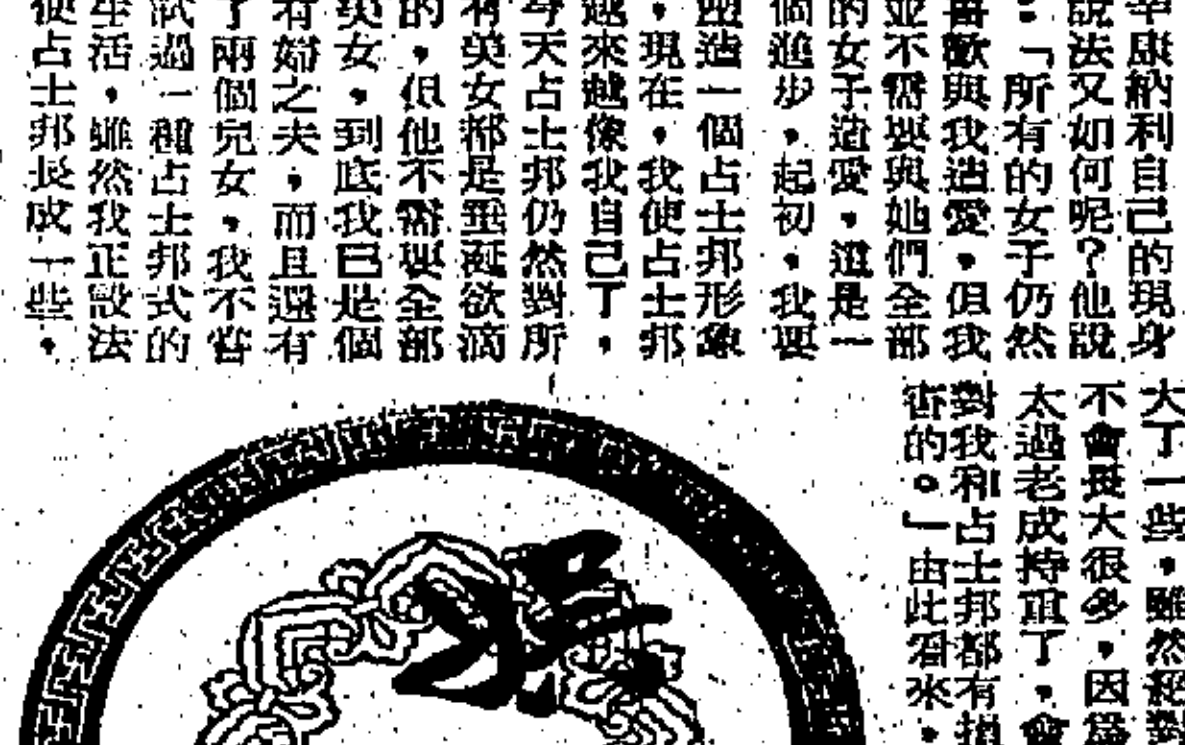 辛康納利自己的現身
說法又如何呢？他說
：「所有的女子仍然
喜歡與我造愛，但我
並不需要與她們全部
的女子造愛，這是一
個進步，起初，我要
塑造一個占士邦形象
，現在，我使占士邦
越來越像我自己了，
今天占士邦仍然對所
有美女都是垂涎欲滴
的，但他不需要全部
美女，到底我已是個
有婦之夫，而且還有
了兩個兒女，我不嘗
試過一種占士邦式的
生活，雖然我正設法
使占士邦長成一些，
大了一些，雖然絕對
不會長大很多，因為
太過老成持重了，會
對我和占士邦都有損
害的。」由此看來，